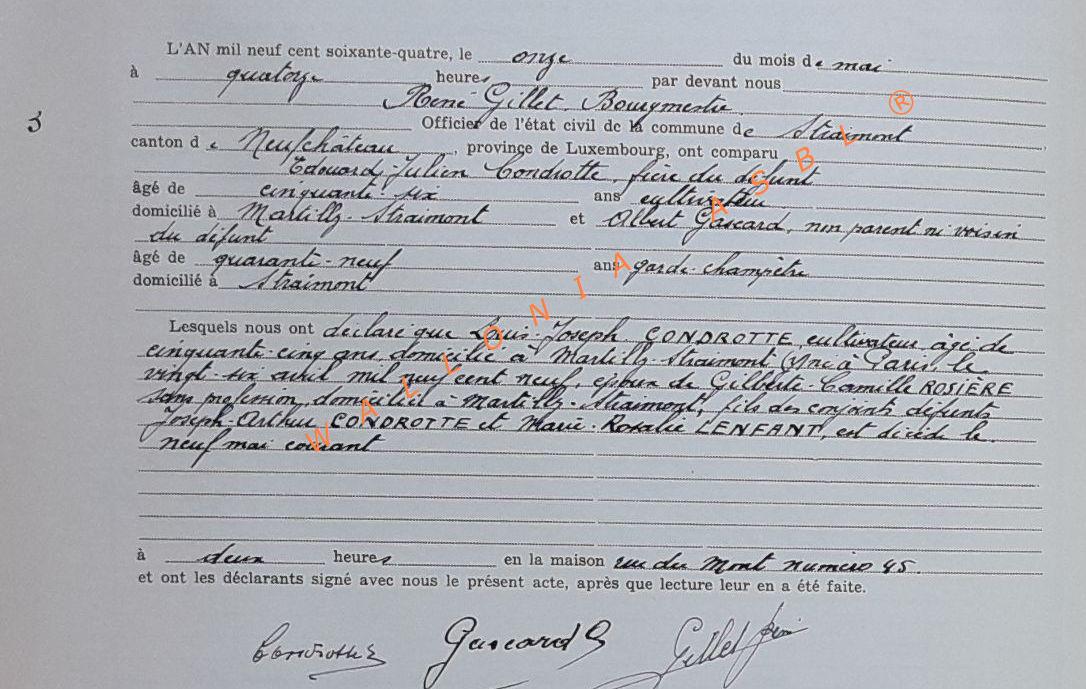 L'AN mil neuf cent soixante-quatre, le onze du mois de mai
à quatorze heures par devant nous
René Gillet Bourgmestre
3
Officier de l'état civil de la commune de Straimont
canton de Neufchâteau, province de Luxembourg, ont comparu
Edouard-Julien Condrotte, frère du défunt
âgé de cinquante six ans cultivateur
domicilié à Martilly-Straimont et Albert Gascard, non parent ni voisin
du défunt
âgé de quarante-neuf ans garde-champêtre
domicilié à Straimont
Lesquels nous ont déclaré que Louis-Joseph CONDROTTE, cultivateur âgé de
cinquante-cinq ans, domicilié à Martilly-Straimont, né à Paris, le
vingt-six avril mil neuf cent neuf, époux de Gilberte-Camille ROSIÈRE
sans profession, domiciliée à Martilly-Straimont, fils des conjoints défunts
Joseph-Arthur CONDROTTE et Marie-Rosalie LENFANT, est décédé le
neuf mai courant
à deux heures en la maison rue du Mont numéro 45.
et ont les déclarants signé avec nous le présent acte, après que lecture leur en a été faite.
Condrotte E Gascard Gillet René
WALLONIA ASBL ®